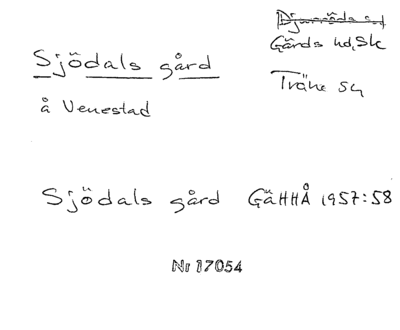 Djurröds sn
Gärds hd, Sk
Sjödals gård
Träne sn
å Venestad
Sjödals gård GäHHÅ 1957:58
Nr 17054